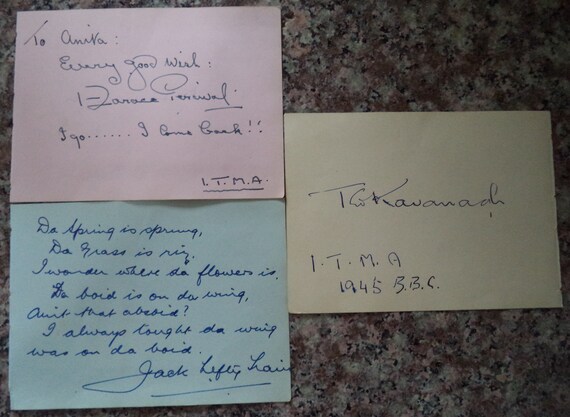 To Anita:
Every good wish:
Horace Percival.
I go...... I come back!!
I.T.M.A.
Da Spring is sprung,
Da Grass is riz,
I wonder where da flowers is.
Da boid is on da wing,
Ain't that absoid?
I always tought da wing
was on da boid.
Jack Lefty Train
Ted Kavanagh
I. T. M. A
1945 B.B.C.